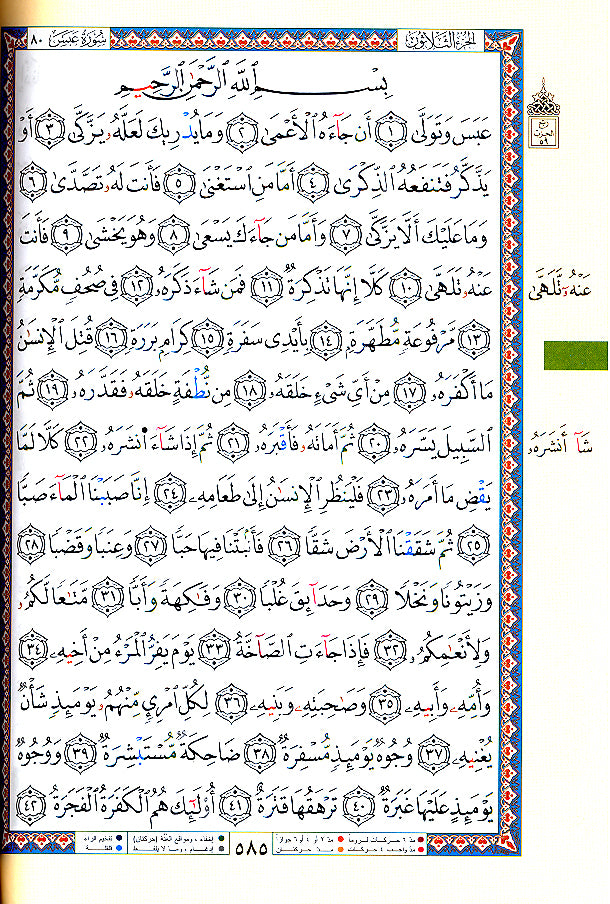 الجزء الثلاثون
سورة عبس ٨٠
بِسْمِ اللَّهِ الرَّحْمَٰنِ الرَّحِيمِ
عَبَسَ وَتَوَلَّىٰ ١ أَن جَآءَهُ الْأَعْمَىٰ ٢ وَمَا يُدْرِيكَ لَعَلَّهُۥ يَزَّكَّىٰ ٣ أَوْ
يَذَّكَّرُ فَتَنفَعُهُ الذِّكْرَىٰ ٤ أَمَّا مَنِ اسْتَغْنَىٰ ٥ فَأَنتَ لَهُۥ تَصَّدَّىٰ ٦
وَمَا عَلَيْكَ أَلَّا يَزَّكَّىٰ ٧ وَأَمَّا مَن جَآءَكَ يَسْعَىٰ ٨ وَهُوَ يَخْشَىٰ ٩ فَأَنتَ
عَنْهُۥ تَلَهَّىٰ ١٠ كَلَّا إِنَّهَا تَذْكِرَةٌ ١١ فَمَن شَآءَ ذَكَرَهُۥ ١٢ فِي صُحُفٍ مُّكَرَّمَةٍ
عَنْهُۥ تَّلَهَّىٰ
١٣ مَّرْفُوعَةٍ مُّطَهَّرَةٍ ١٤ بِأَيْدِي سَفَرَةٍ ١٥ كِرَامٍ بَرَرَةٍ ١٦ قُتِلَ الْإِنسَٰنُ
مَا أَكْفَرَهُۥ ١٧ مِنْ أَيِّ شَيْءٍ خَلَقَهُۥ ١٨ مِن نُّطْفَةٍ خَلَقَهُۥ فَقَدَّرَهُۥ ١٩ ثُمَّ
السَّبِيلَ يَسَّرَهُۥ ٢٠ ثُمَّ أَمَاتَهُۥ فَأَقْبَرَهُۥ ٢١ ثُمَّ إِذَا شَآءَ انشَرَهُۥ ٢٢ كَلَّا لَمَّا
شَآ أَنشَرَهُۥ
يَقْضِ مَا أَمَرَهُۥ ٢٣ فَلْيَنظُرِ الْإِنسَٰنُ إِلَىٰ طَعَامِهِۦ ٢٤ إِنَّا صَبَبْنَا الْمَآءَ صَبًّا
٢٥ ثُمَّ شَقَقْنَا الْأَرْضَ شَقًّا ٢٦ فَأَنۢبَتْنَا فِيهَا حَبًّا ٢٧ وَعِنَبًا وَقَضْبًا ٢٨
وَزَيْتُونًا وَنَخْلًا ٢٩ وَحَدَآئِقَ غُلْبًا ٣٠ وَفَٰكِهَةً وَأَبًّا ٣١ مَّتَٰعًا لَّكُمُۥ
وَلِأَنْعَٰمِكُمُۥ ٣٢ فَإِذَا جَآءَتِ الصَّآخَّةُ ٣٣ يَوْمَ يَفِرُّ الْمَرْءُ مِنْ أَخِيهِۦ ٣٤
وَأُمِّهِۦ وَأَبِيهِۦ ٣٥ وَصَٰحِبَتِهِۦ وَبَنِيهِۦ ٣٦ لِكُلِّ امْرِيٍٕ مِّنْهُمُۥ يَوْمَئِذٍ شَأْنٌ
يُغْنِيهِۦ ٣٧ وُجُوهٌ يَوْمَئِذٍ مُّسْفِرَةٌ ٣٨ ضَاحِكَةٌ مُّسْتَبْشِرَةٌ ٣٩ وَوُجُوهٌ
يَوْمَئِذٍ عَلَيْهَا غَبَرَةٌ ٤٠ تَرْهَقُهَا قَتَرَةٌ ٤١ أُوْلَٰٓئِكَ هُمُ الْكَفَرَةُ الْفَجَرَةُ ٤٢
مدّ ٦ حركات لزوماً مدّ ٢ أو ٤ أو ٦ جوازاً
مدّ واجب ٤ حركات مدّ حركتان
٥٨٥
إخفاء، ومواقع الغنّة (حركتان) تفخيم الراء
إدغام، وما لا يلفظ قلقلة